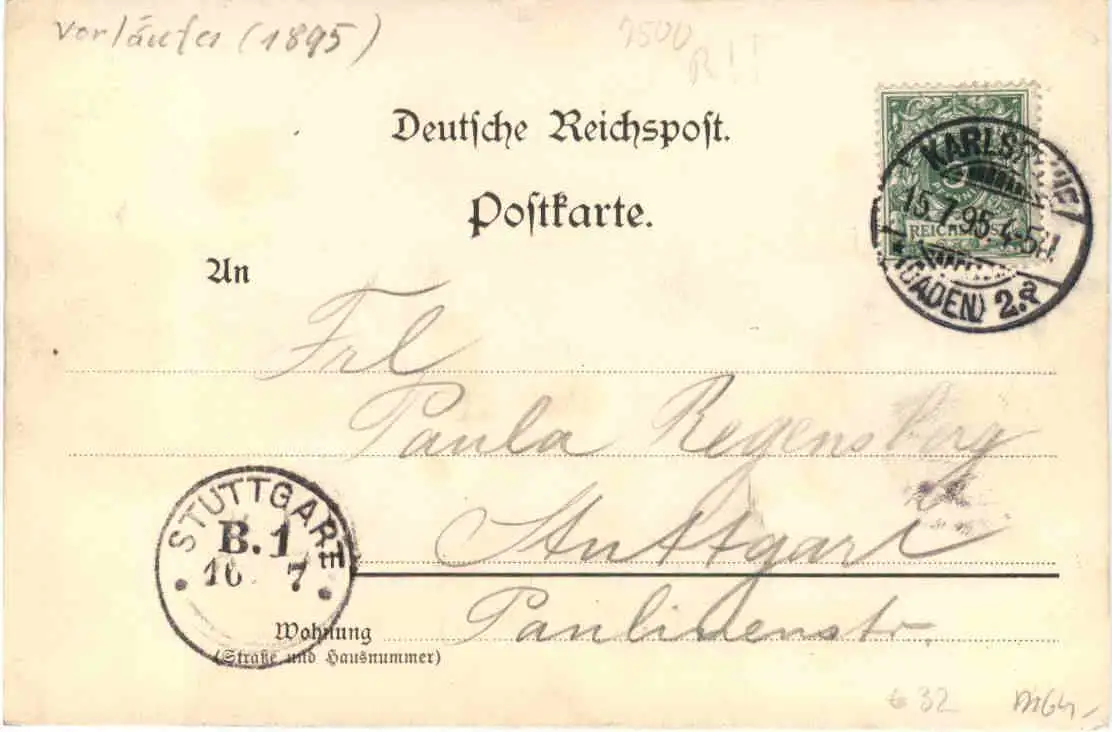 Vorläufer (1895)
7500
R!!
Deutsche Reichspost.
Postkarte.
KARLSRUHE
15.7.95.4-5N.
REICHSPOST
(BADEN) 2.a
An
Frl
Paula Regensberg
Stuttgart
STUTTGART
B.1
16 7
Paulinenstr.
Wohnung
(Straße und Hausnummer)
32